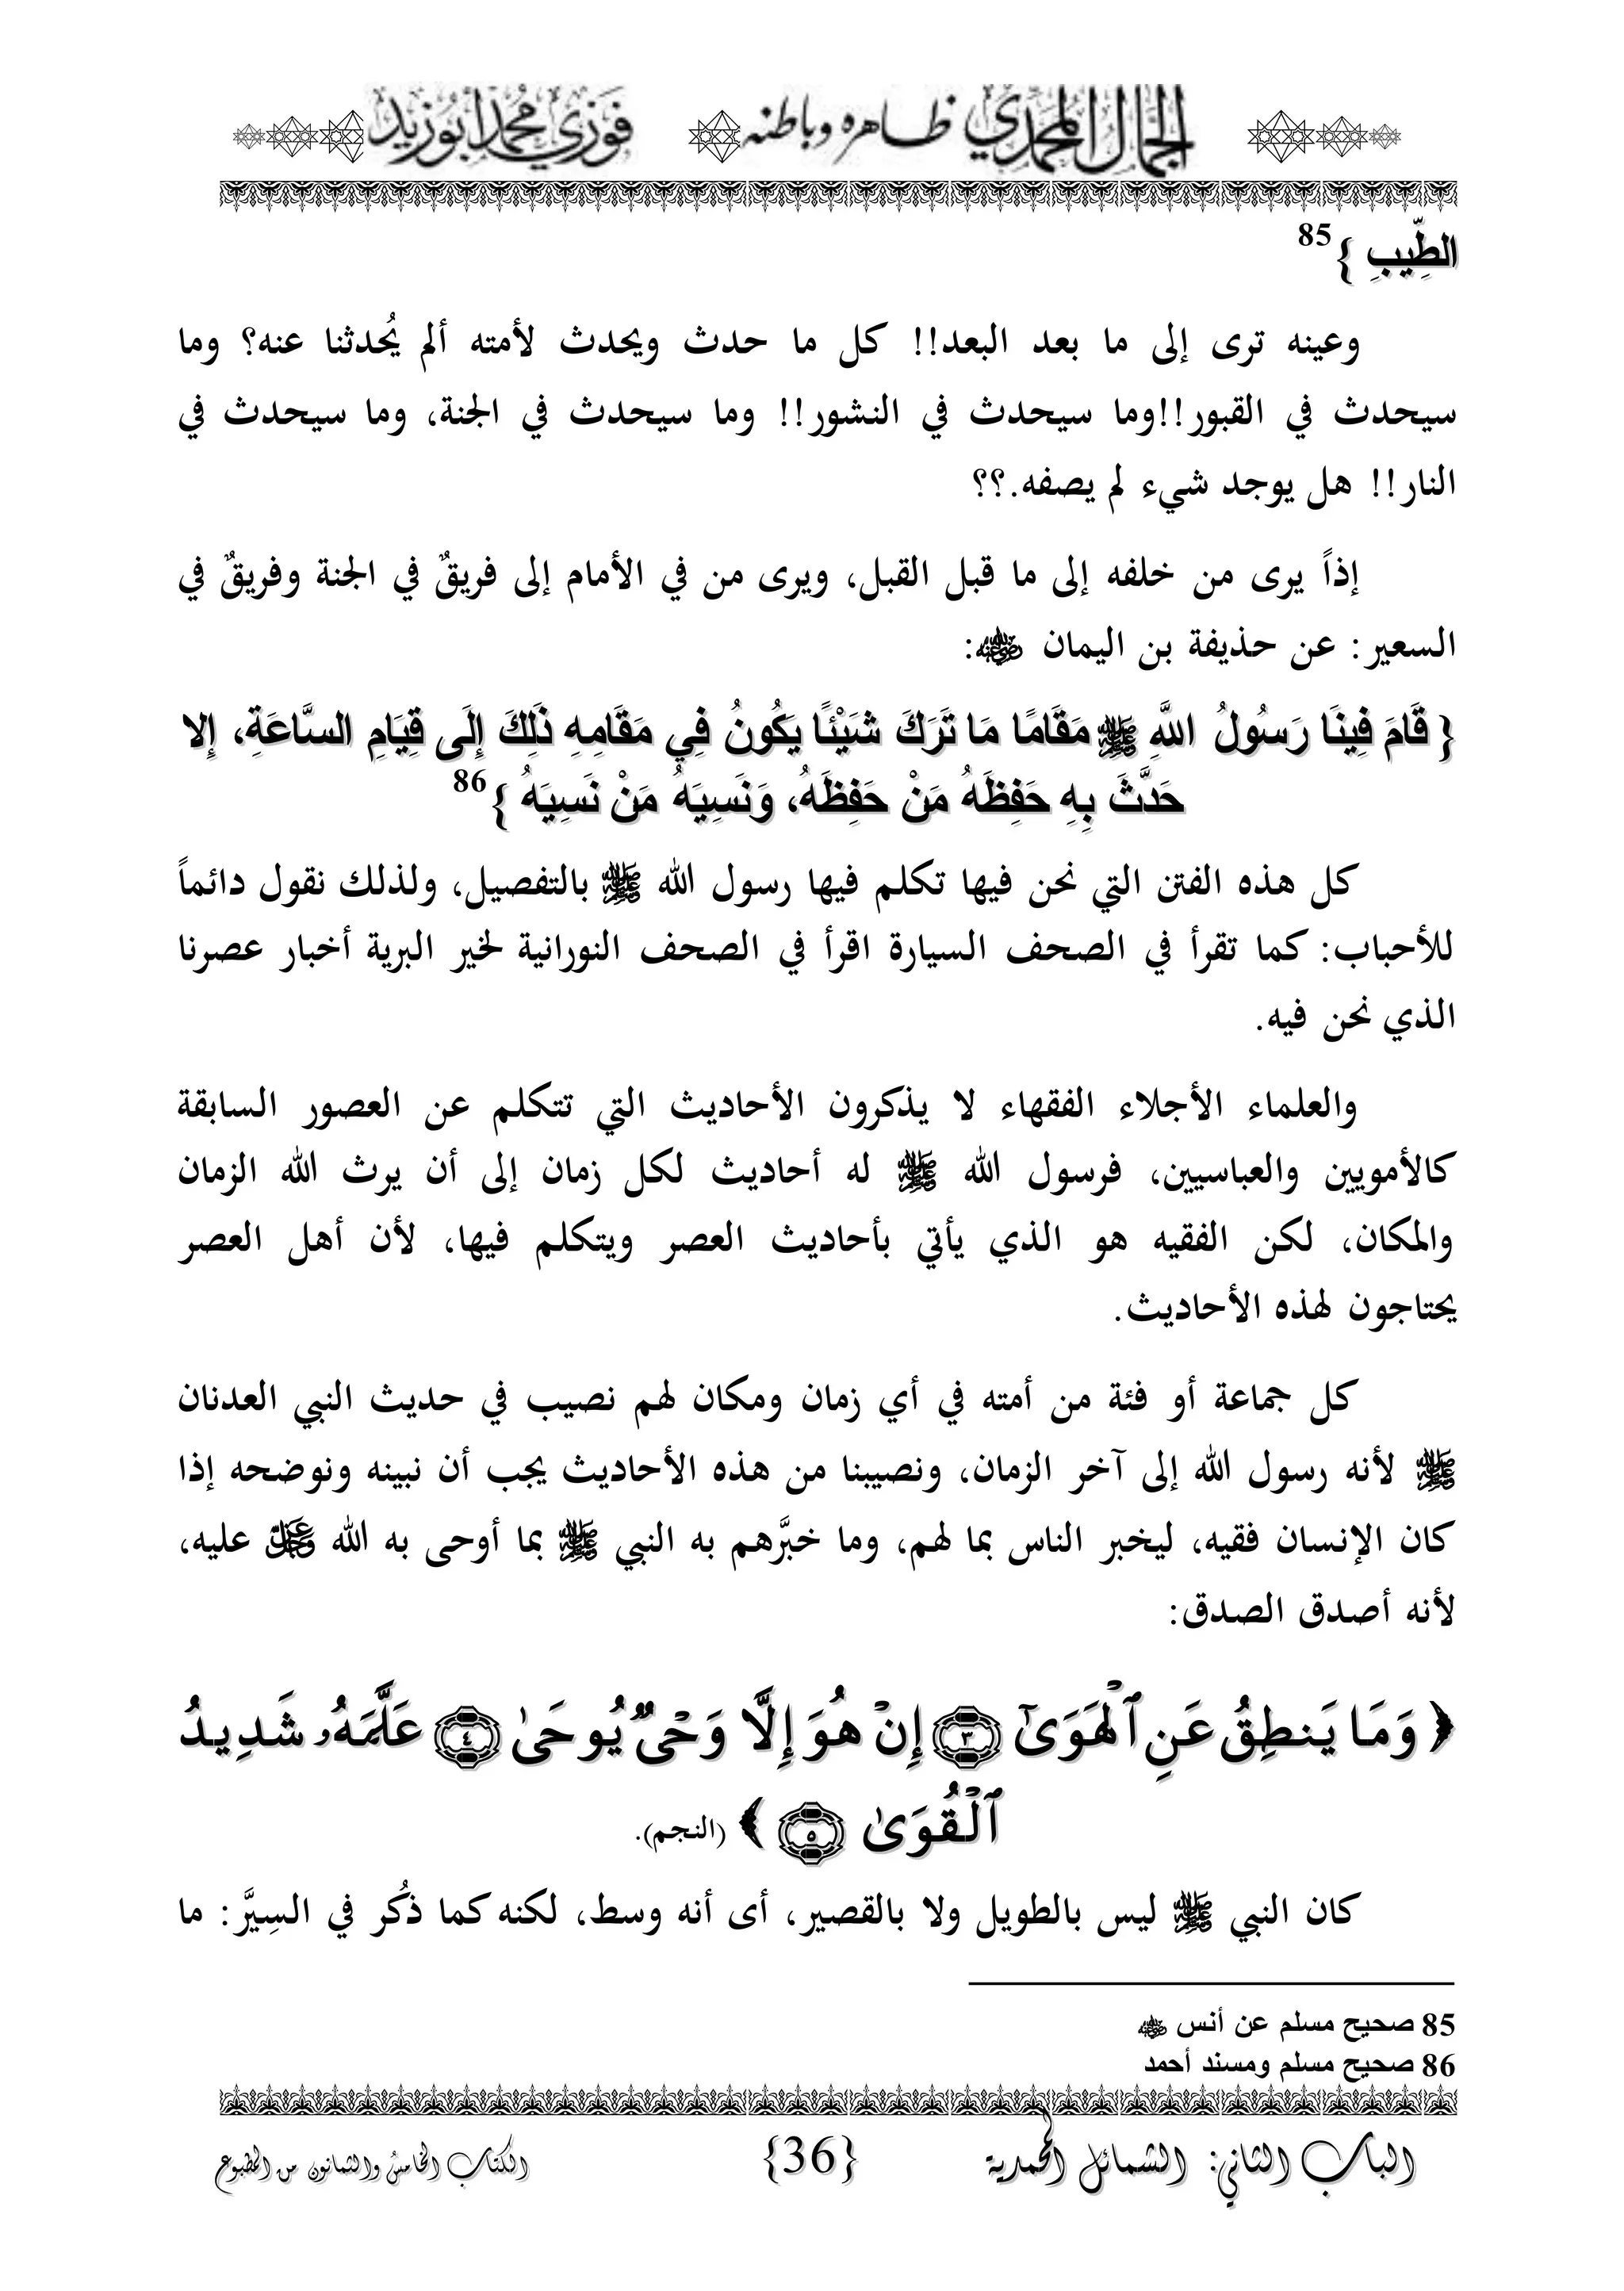 الجمال المحمدي ظاهره وباطنه فوزي محمد أبوزيد
الطِّيبِ }85
وعينه ترى إلى ما بعد البعد!! كل ما حدث ويحدث لأمته ألم يُحدثنا عنه؟ وما
سيحدث في القبور!!وما سيحدث في النشور!! وما سيحدث في الجنة، وما سيحدث في
النار!! هل يوجد شيء لم يصفه.؟؟
إذاً يرى من خلفه إلى ما قبل القبل، ويرى من في الأمام إلى فريقٌ في الجنة وفريقٌ في
السعير: عن حذيفة بن اليمان ﷜:
{ قَامَ فِينَا رَسُولُ اللَّهِ ﷺ مَقَامًا مَا تَرَكَ شَيْئًا يَكُونُ فِي مَقَامِهِ ذَلِكَ إِلَى قِيَامِ السَّاعَةِ، إِلا
حَدَّثَ بِهِ حَفِظَهُ مَنْ حَفِظَهُ، وَنَسِيَهُ مَنْ نَسِيَهُ }86
كل هذه الفتن التي نحن فيها تكلم فيها رسول الله ﷺ بالتفصيل، ولذلك نقول دائماً
للأحباب: كما تقرأ في الصحف السيارة اقرأ في الصحف النورانية لخير البرية أخبار عصرنا
الذي نحن فيه.
والعلماء الأجلاء الفقهاء لا يذكرون الأحاديث التي تتكلم عن العصور السابقة
كالأمويين والعباسيين، فرسول الله ﷺ له أحاديث لكل زمان إلى أن يرث الله الزمان
والمكان، لكن الفقيه هو الذي يأتي بأحاديث العصر ويتكلم فيها، لأن أهل العصر
يحتاجون لهذه الأحاديث.
كل جماعة أو فئة من أمته في أي زمان ومكان لهم نصيب في حديث النبي العدنان
ﷺ لأنه رسول الله إلى آخر الزمان، ونصيبنا من هذه الأحاديث يجب أن نبينه ونوضحه إذا
كان الإنسان فقيه، ليخبر الناس بما لهم، وما خبَّرهم به النبي ﷺ بما أوحى به الله عَزَّ وَجَلَّ عليه،
لأنه أصدق الصدق:
﴿ وَمَا يَنطِقُ عَنِ ٱلْهَوَىٰٓ ٣ إِنْ هُوَ إِلَّا وَحْىٌ يُوحَىٰ ٤ عَلَّمَهُۥ شَدِيدُ
ٱلْقُوَىٰ ٥ ﴾ (النجم).
كان النبي ﷺ ليس بالطويل ولا بالقصير، أى أنه وسط، لكنه كما ذُكر في السِيَّر: ما
85 صحيح مسلم عن أنس ﷜
86 صحيح مسلم ومسند أحمد
الباب الثاني: الشمائل المحمدية {36} الكتاب الخامس والثمانون من المطبوع